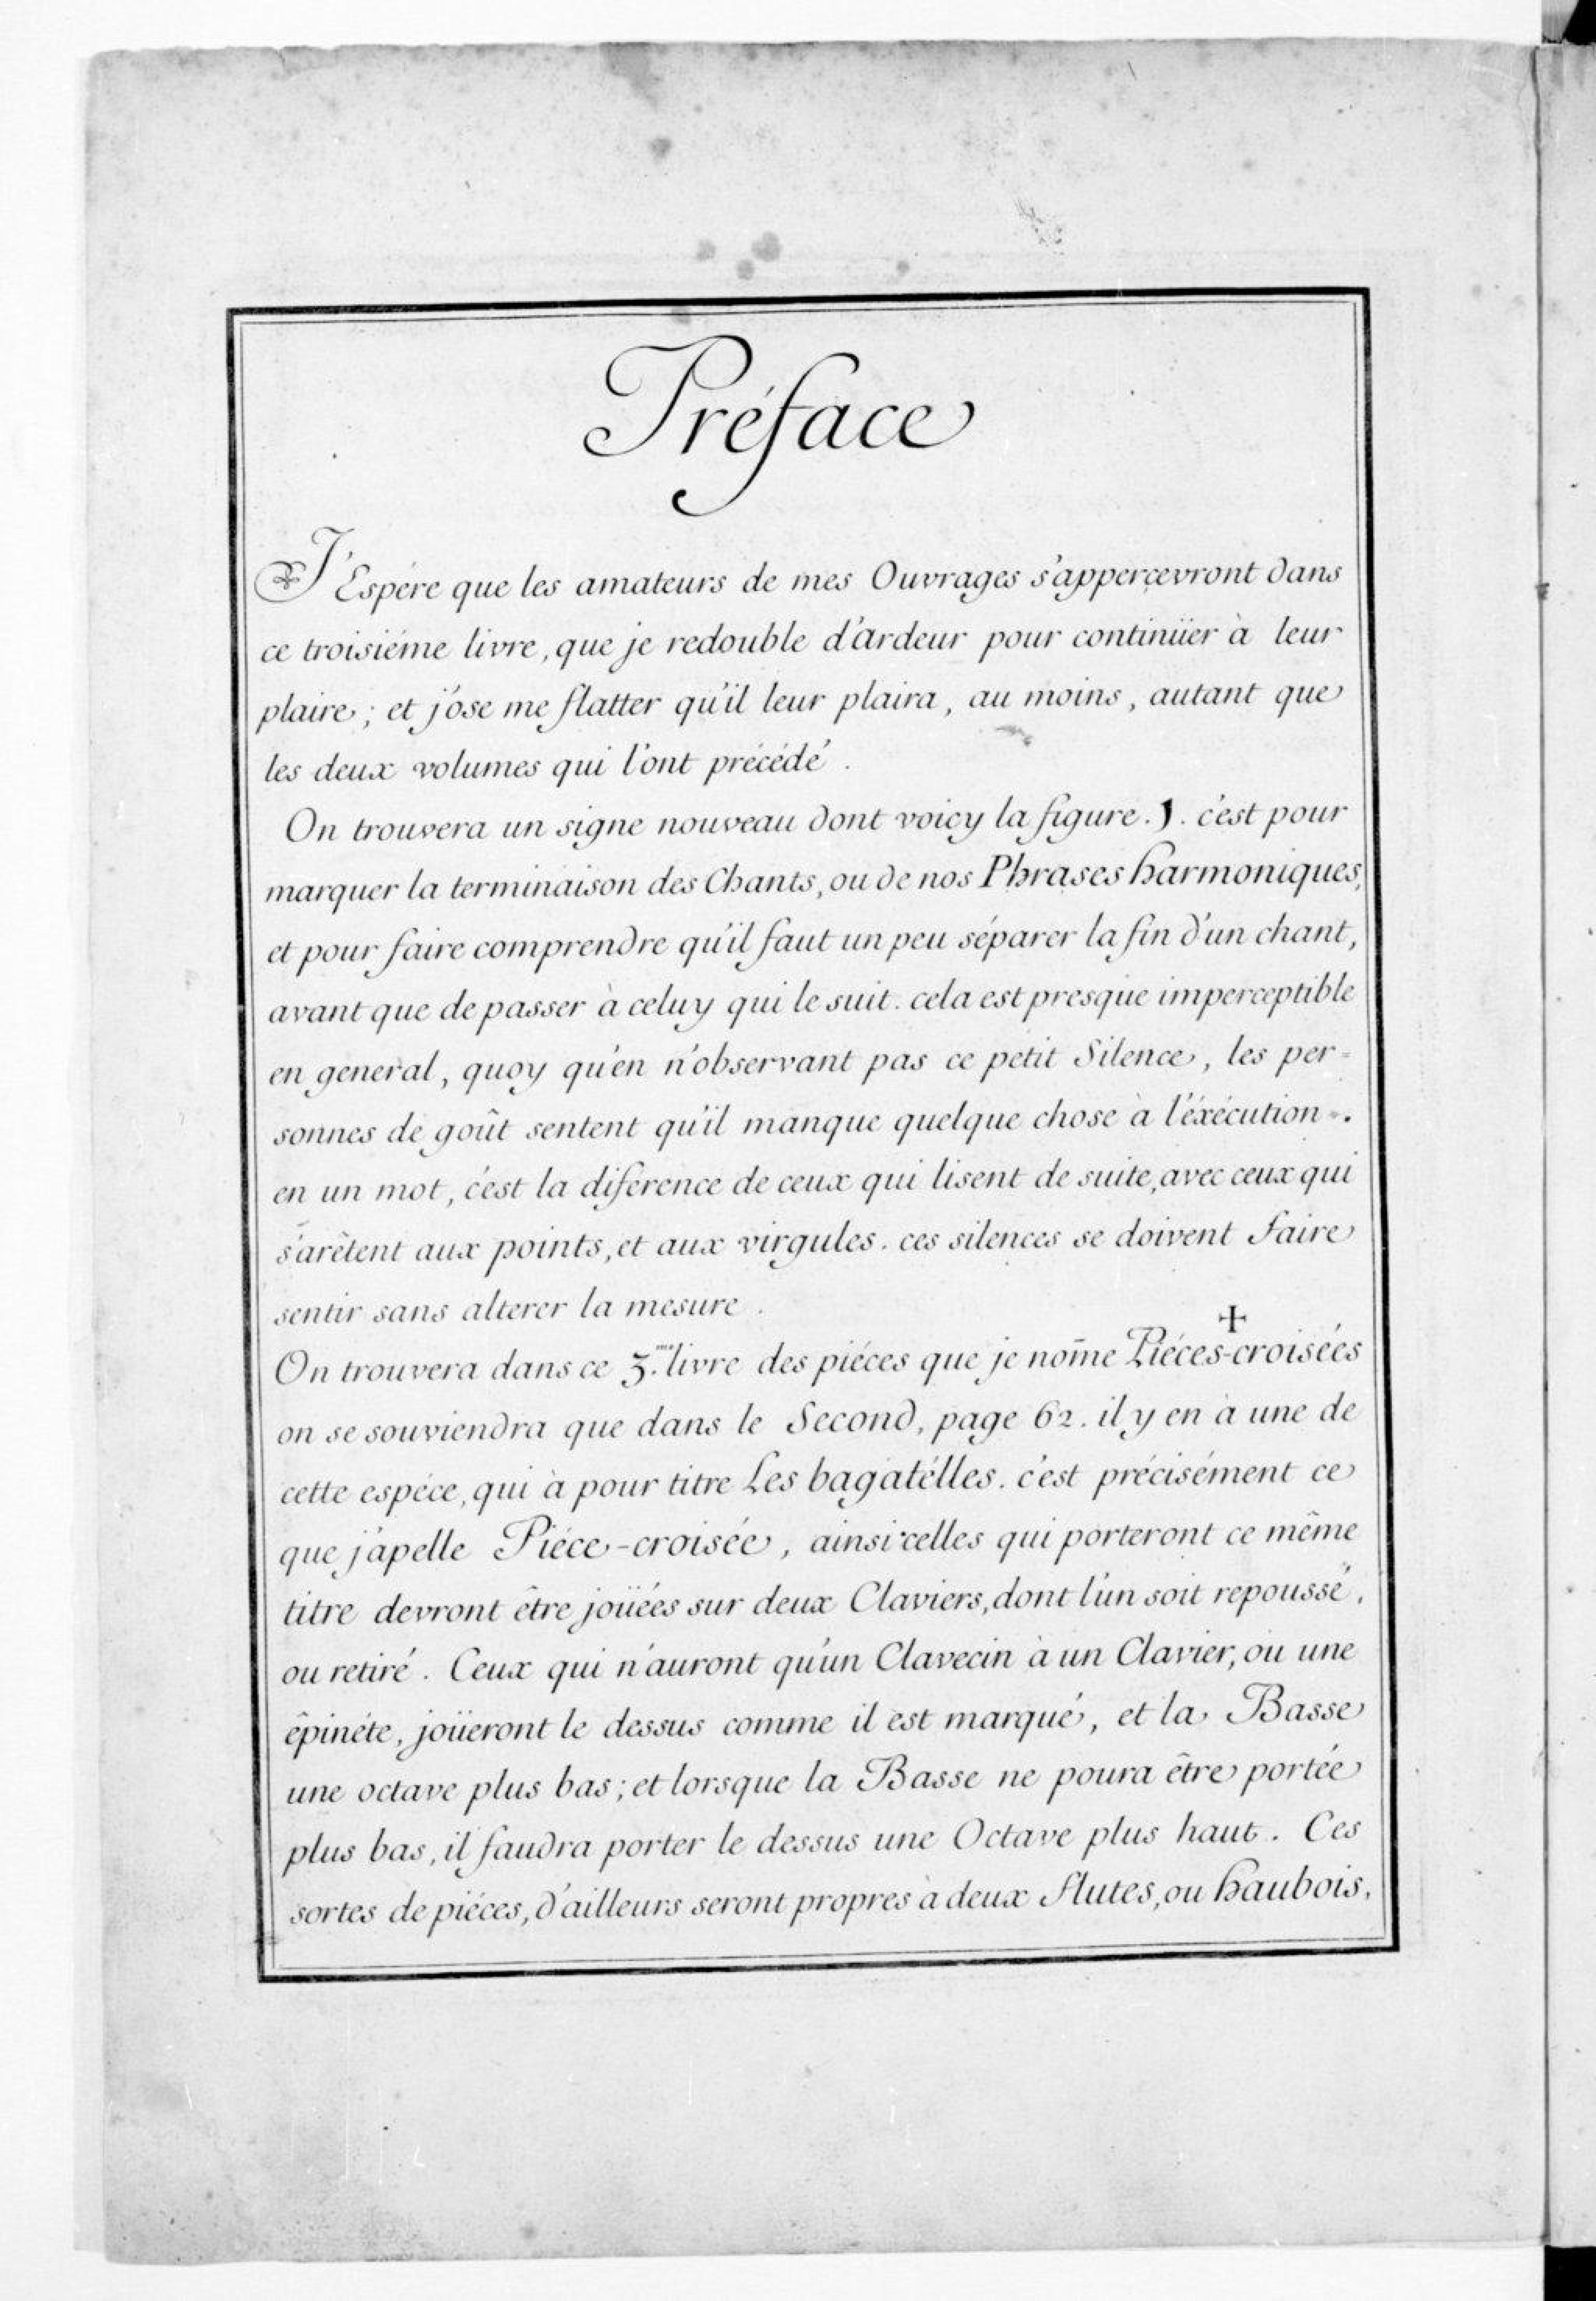 Préface
J'Espére que les amateurs de mes Ouvrages s'apperçevront dans
ce troisiéme livre, que je redouble d'ardeur pour continüer à leur
plaire; et j'ose me flatter qu'il leur plaira, au moins, autant que
les deux volumes qui l'ont précédé.
On trouvera un signe nouveau dont voicy la figure. ❜. c'est pour
marquer la terminaison des Chants, ou de nos Phrases harmoniques,
et pour faire comprendre qu'il faut un peu séparer la fin d'un chant,
avant que de passer à celuy qui le suit. cela est presque imperceptible
en general, quoy qu'en n'observant pas ce petit Silence, les per=
sonnes de goût sentent qu'il manque quelque chose à l'éxécution.
en un mot, c'est la diférence de ceux qui lisent de suite, avec ceux qui
s'arêtent aux points, et aux virgules. ces silences se doivent faire
sentir sans alterer la mesure.
On trouvera dans ce 3.me livre des piéces que je nom̄e Piéces-croisées +
on se souviendra que dans le Second, page 62. il y en à une de
cette espéce, qui à pour titre Les bagatélles. c'est précisément ce
que j'apelle Piéce-croisée, ainsi celles qui porteront ce même
titre devront être joüées sur deux Claviers, dont l'un soit repoussé,
ou retiré. Ceux qui n'auront qu'un Clavecin à un Clavier, ou une
êpinéte, joüeront le dessus comme il est marqué, et la Basse
une octave plus bas; et lorsque la Basse ne poura être portée
plus bas, il faudra porter le dessus une Octave plus haut. Ces
sortes de piéces, d'ailleurs seront propres à deux Flutes, ou haubois,